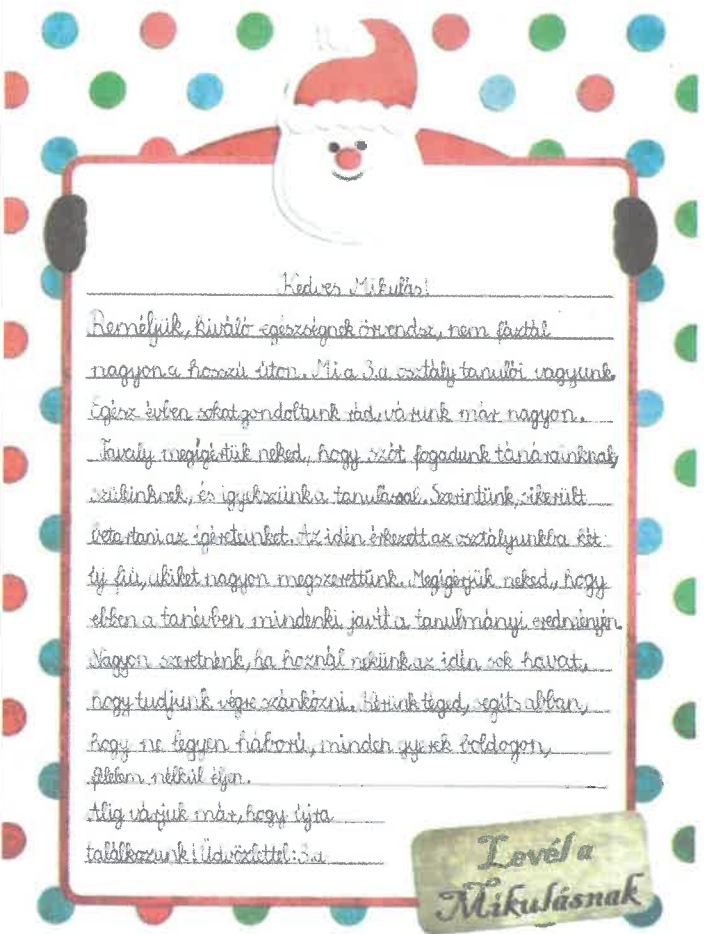 Kedves Mikulás!
Reméljük, kiváló egészségnek örvendsz, nem fáztál
nagyon a hosszú úton. Mi a 3.a osztály tanulói vagyunk.
Egész évben sokat gondoltunk rád, várunk már nagyon.
Tavaly megígértük neked, hogy szót fogadunk tanárainknak,
szüleinknek, és igyekszünk a tanulással. Szerintünk, sikerült
betartani az ígéreteinket. Az idén érkezett az osztályunkba két
új fiú, akiket nagyon megszerettünk. Megígérjük neked, hogy
ebben a tanévben mindenki javít a tanulmányi eredményén.
Nagyon szeretnénk, ha hoznál nekünk az idén sok havat,
hogy tudjunk végre szánkózni. Kérünk téged, segíts abban,
hogy ne legyen háború, minden gyerek boldogon,
félelem nélkül éljen.
Alig várjuk már, hogy újra
találkozunk! Üdvözlettel: 3.a
Levél a
Mikulásnak